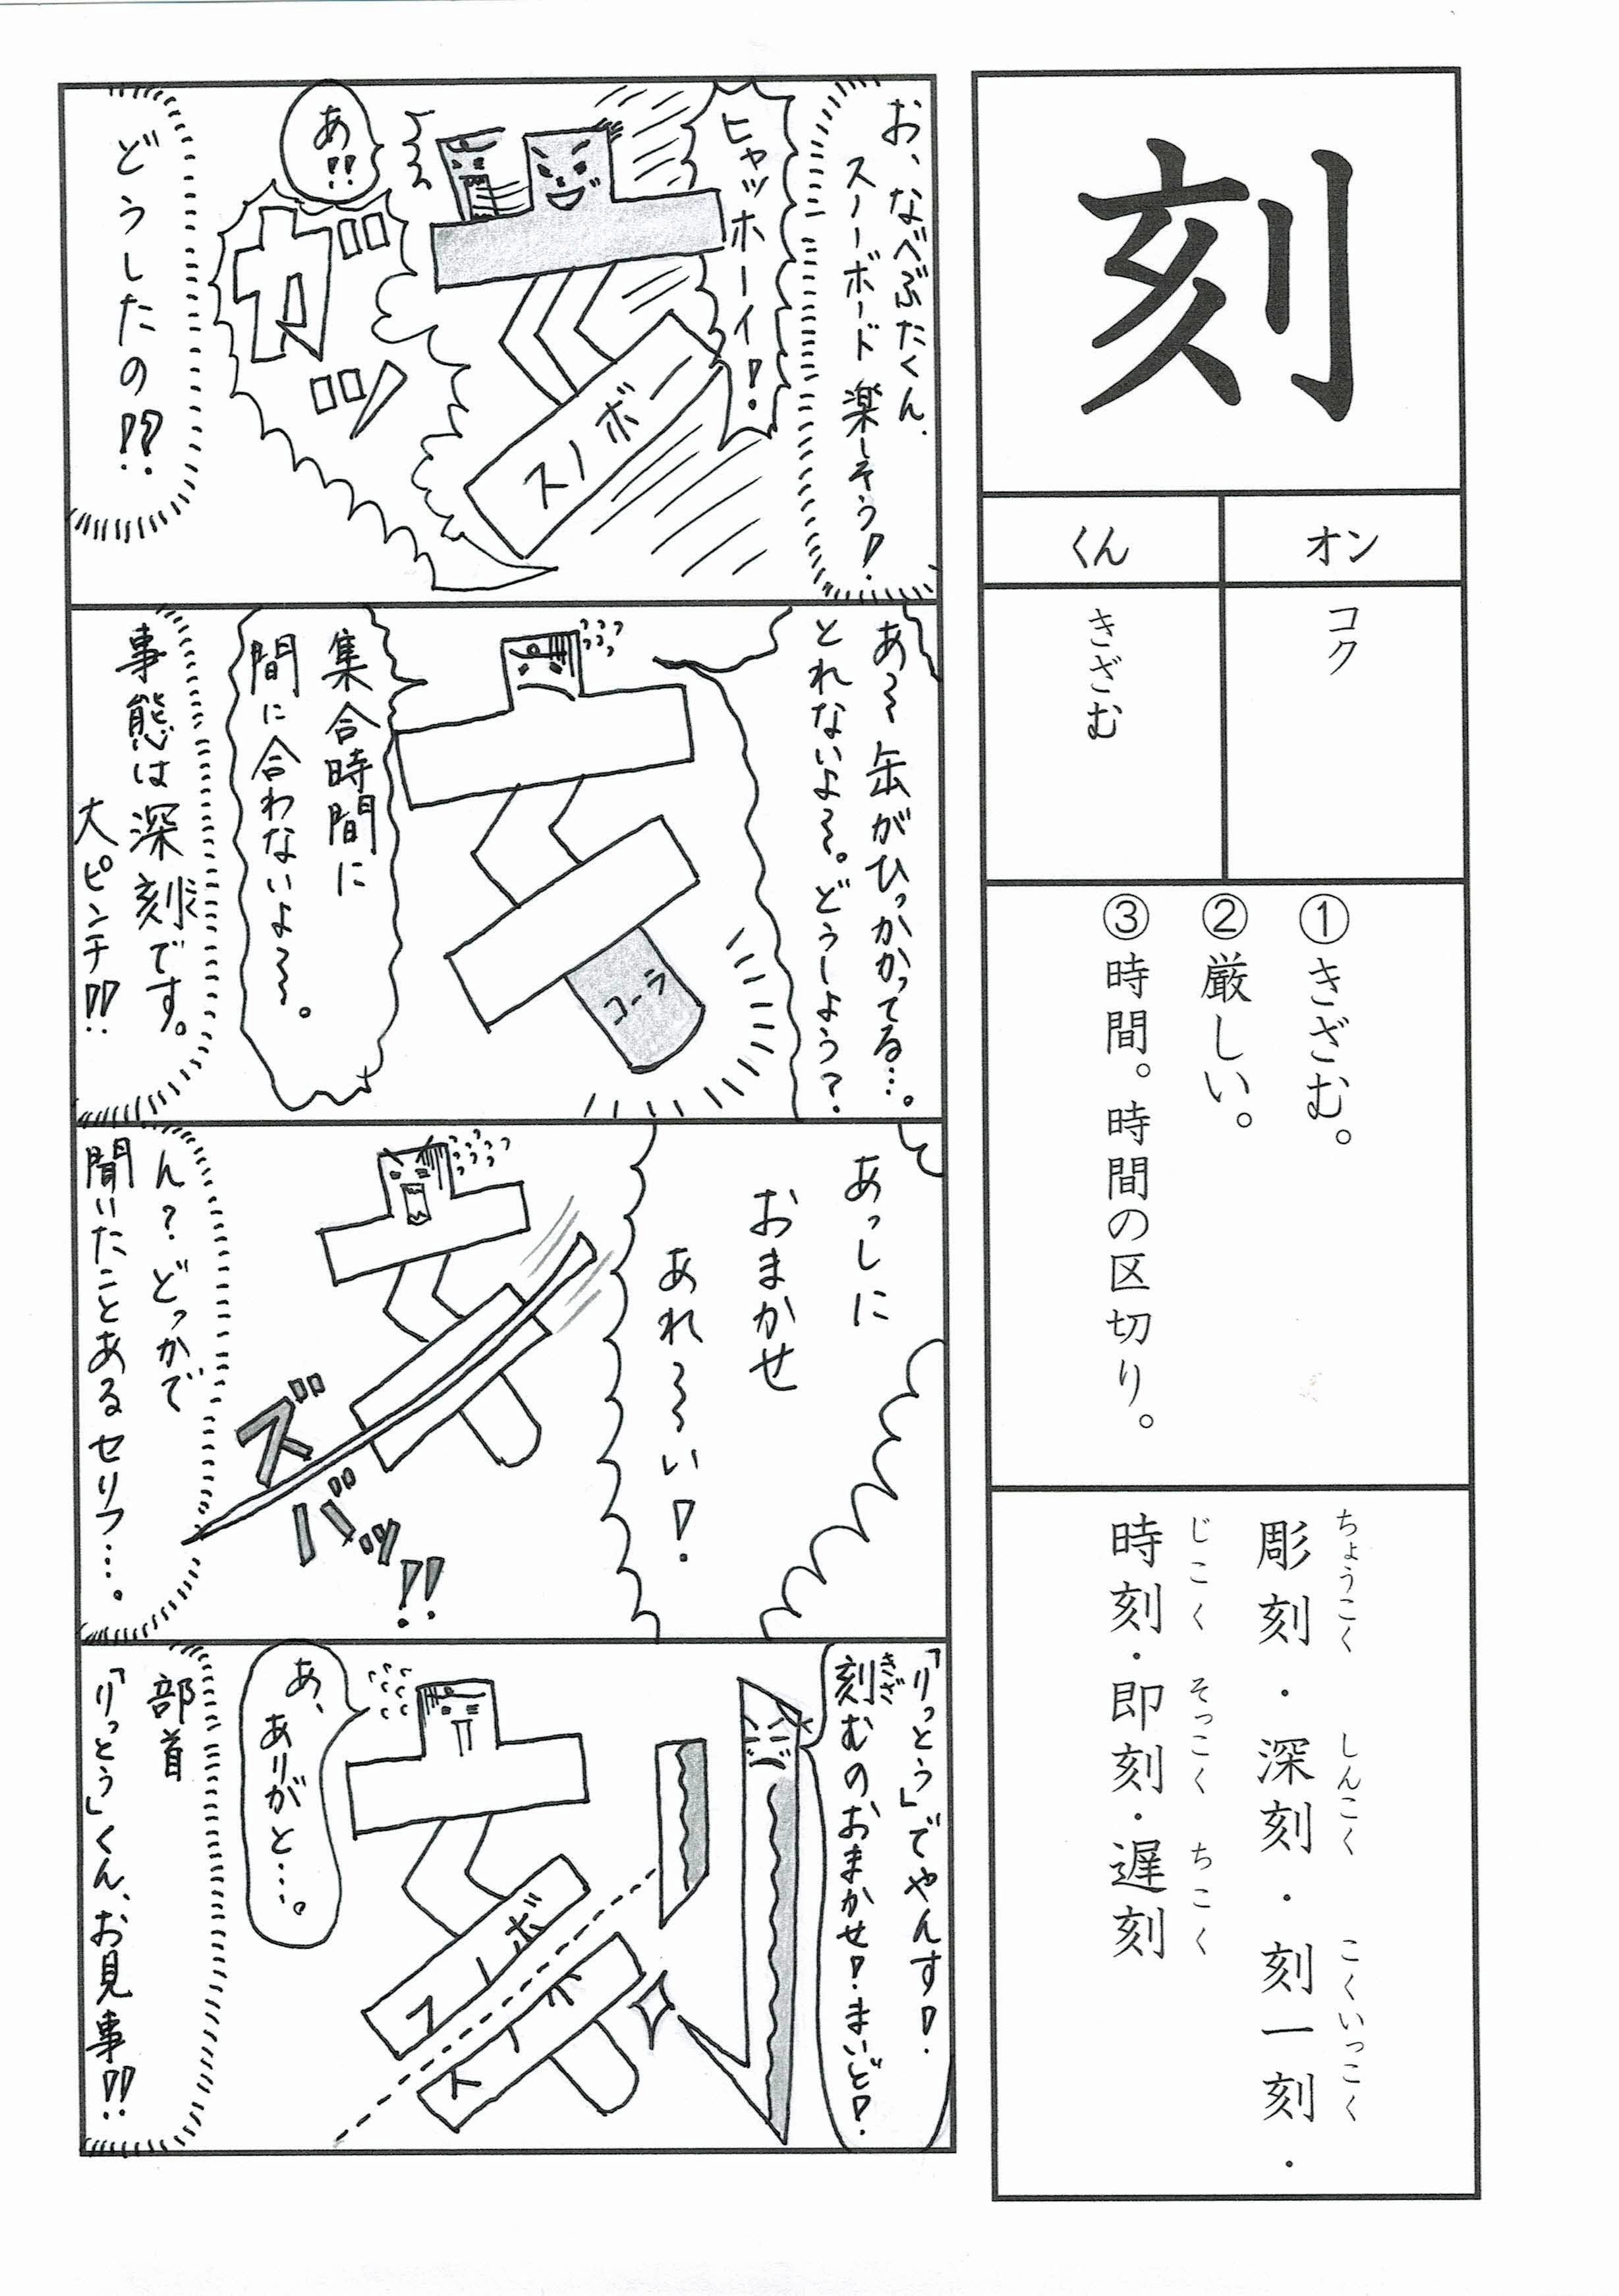 刻
オン
コク
くん
きざむ
①きざむ。
②厳しい。
③時間。時間の区切り。
ちょうこく　しんこく　こくいっこく
彫刻・深刻・刻一刻・
じこく　そっこく　ちこく
時刻・即刻・遅刻
お、なべぶたくん、
スノーボード楽しそう!
ヒャッホーイ!
スノボ
あ!!
ガガガッ
どうしたの!??
あ～缶がひっかかってる…。
とれないよ～。どうしよう?
コーラ
集合時間に
間に合わないよ～。
事態は深刻です。
こく
大ピンチ!!
あっしに
おまかせ
あれ～い!
ズバッ!!
ん?どっかで
聞いたことあるセリフ…。
「りっとう」でやんす!
きざ
刻むのおまかせ!まいど!
スノボ
あ、
ありがと…。
部首
「りっとう」くん、お見事!!